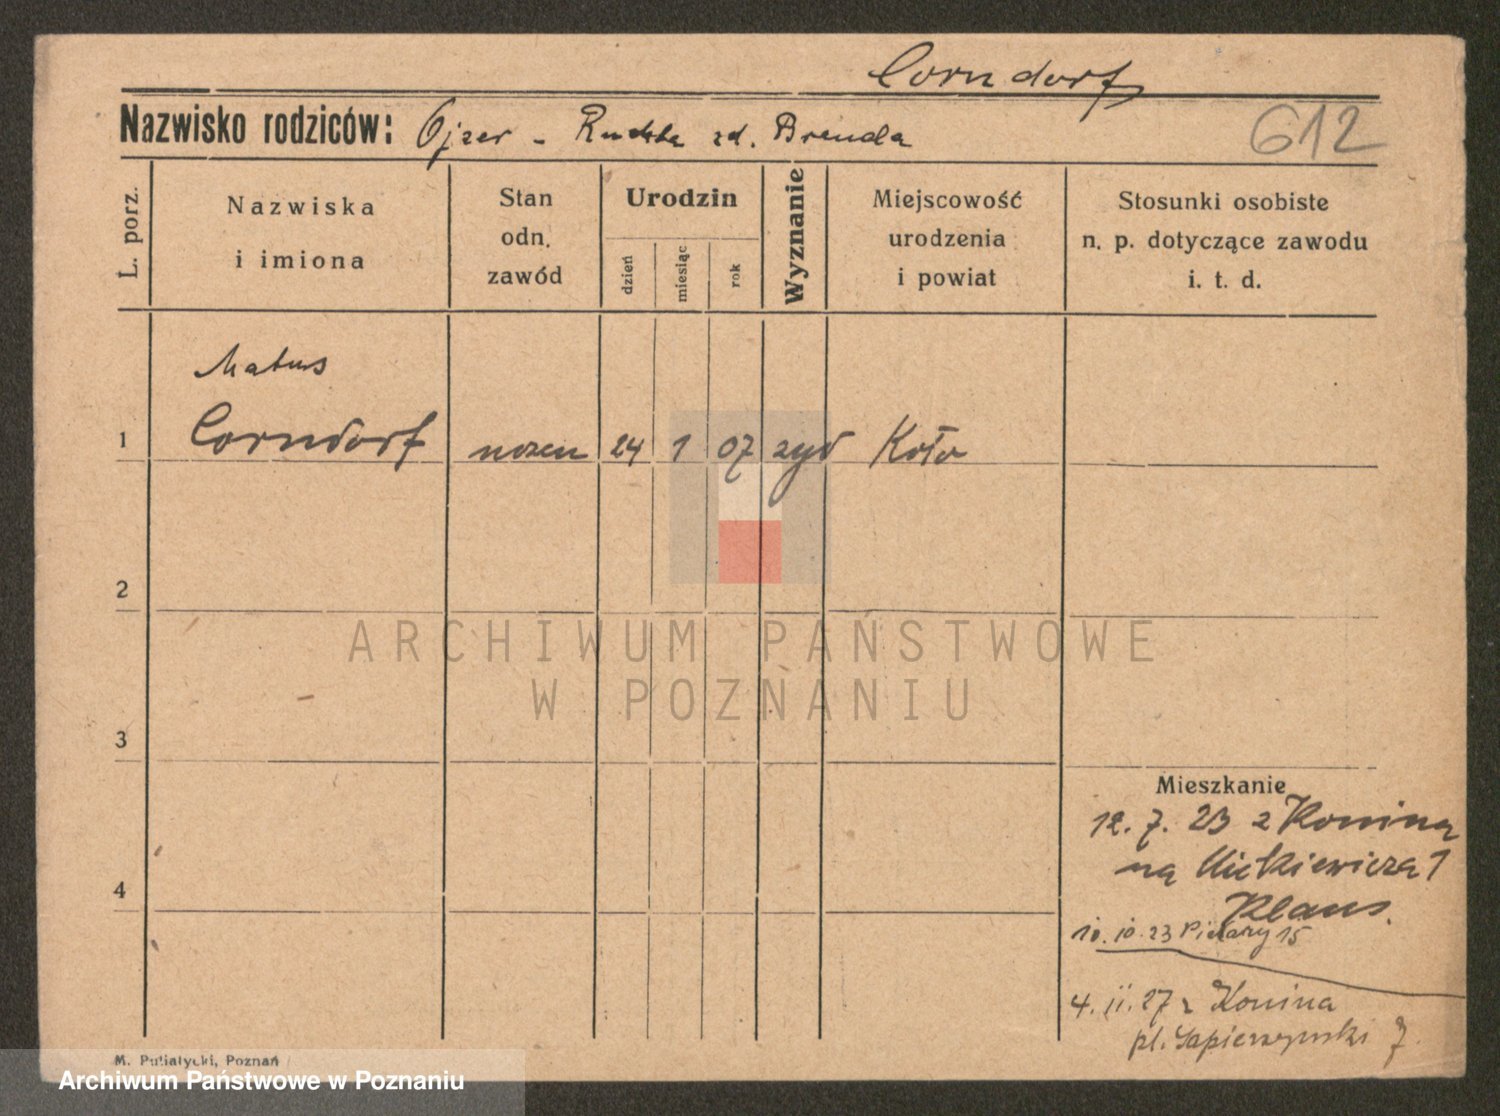 Corndorf
Nazwisko rodziców: Ojzer - Rudka zd. Brenda
612
L. porz.
Nazwiska
i imiona
Stan
odn.
zawód
Urodzin
dzień
miesiąc
rok
Wyznanie
Miejscowość
urodzenia
i powiat
Stosunki osobiste
n. p. dotyczące zawodu
i. t. d.
Matus
1 Corndorf 24 1 07 żyd Koło
2
ARCHIWUM PAŃSTWOWE
W POZNANIU
3
Mieszkanie
12. 7. 23 z Konina
na Mickiewicza 1
4
Klaus.
10. 10. 23 Piekary 15
4. 11. 27 z Konina
pl. Sapierzynski 7.
M. Putiatycki, Poznań
Archiwum Państwowe w Poznaniu